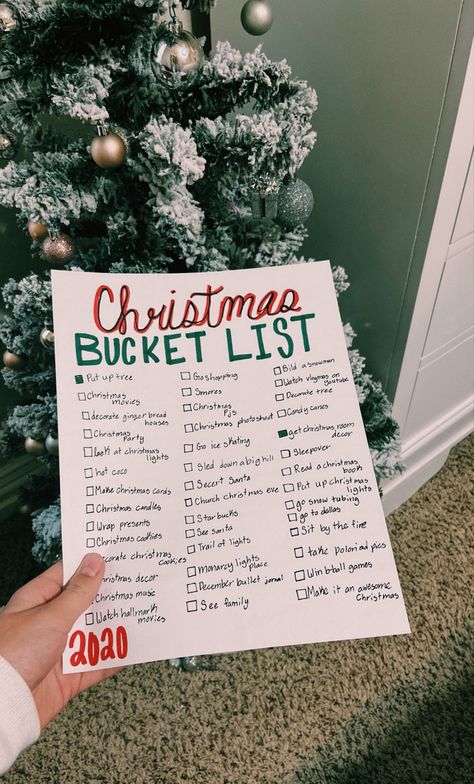 Christmas
BUCKET LIST
Put up tree
Christmas
movies
decorate ginger bread
houses
Christmas
Party
look at Christmas
lights
hot coco
Make Christmas cards
Christmas candles
Wrap presents
Christmas cookies
corate christmas
cookies
christmas decor
Christmas music
Watch hallmark
movies
Go shopping
Smores
Christmas
Pjs
Christmas photoshoot
Go ice skating
Sled down a big hill
Secert Santa
Church christmas eve
Starbucks
See santa
Trail of lights
manarzy lights
place
December bullet jornal
See family
Bild a snowman
Watch vlogmas on
youtube
Decorate tree
Candy canes
get christmas room
decor
Sleepover
Read a christmas
book
Put up christmas
lights
go snow tubing
go to dallas
Sit by the fire
take Poloriad pics
Win b-ball games
Make it an awesome
Christmas
2020